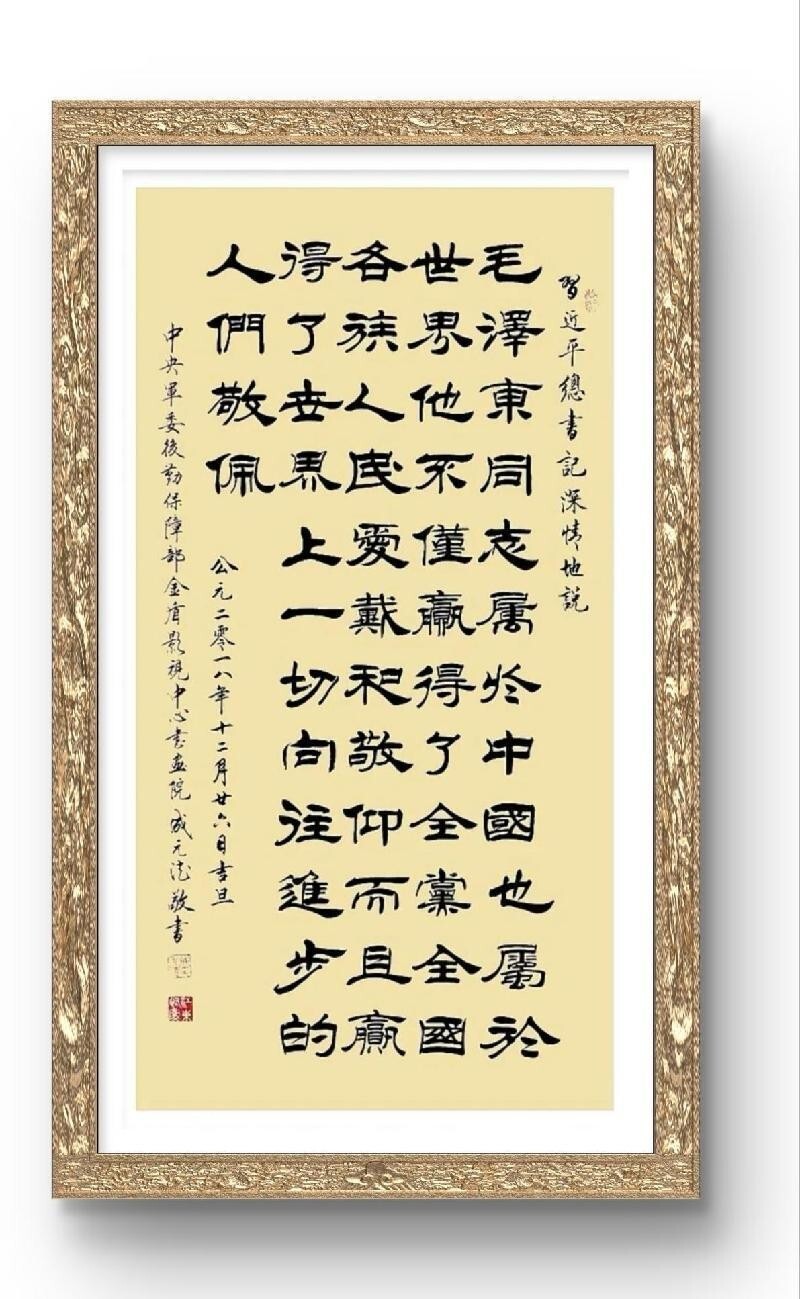 習近平總書記深情地說
毛澤東同志属於中國也屬於
世界他不僅贏得了全黨全國
各族人民愛戴和敬仰而且贏
得了世界上一切向往進步的
人們敬佩
公元二零一八年十二月廿六日吉旦
中央軍委後勤保障部金盾影視中心書畫院成元法敬書